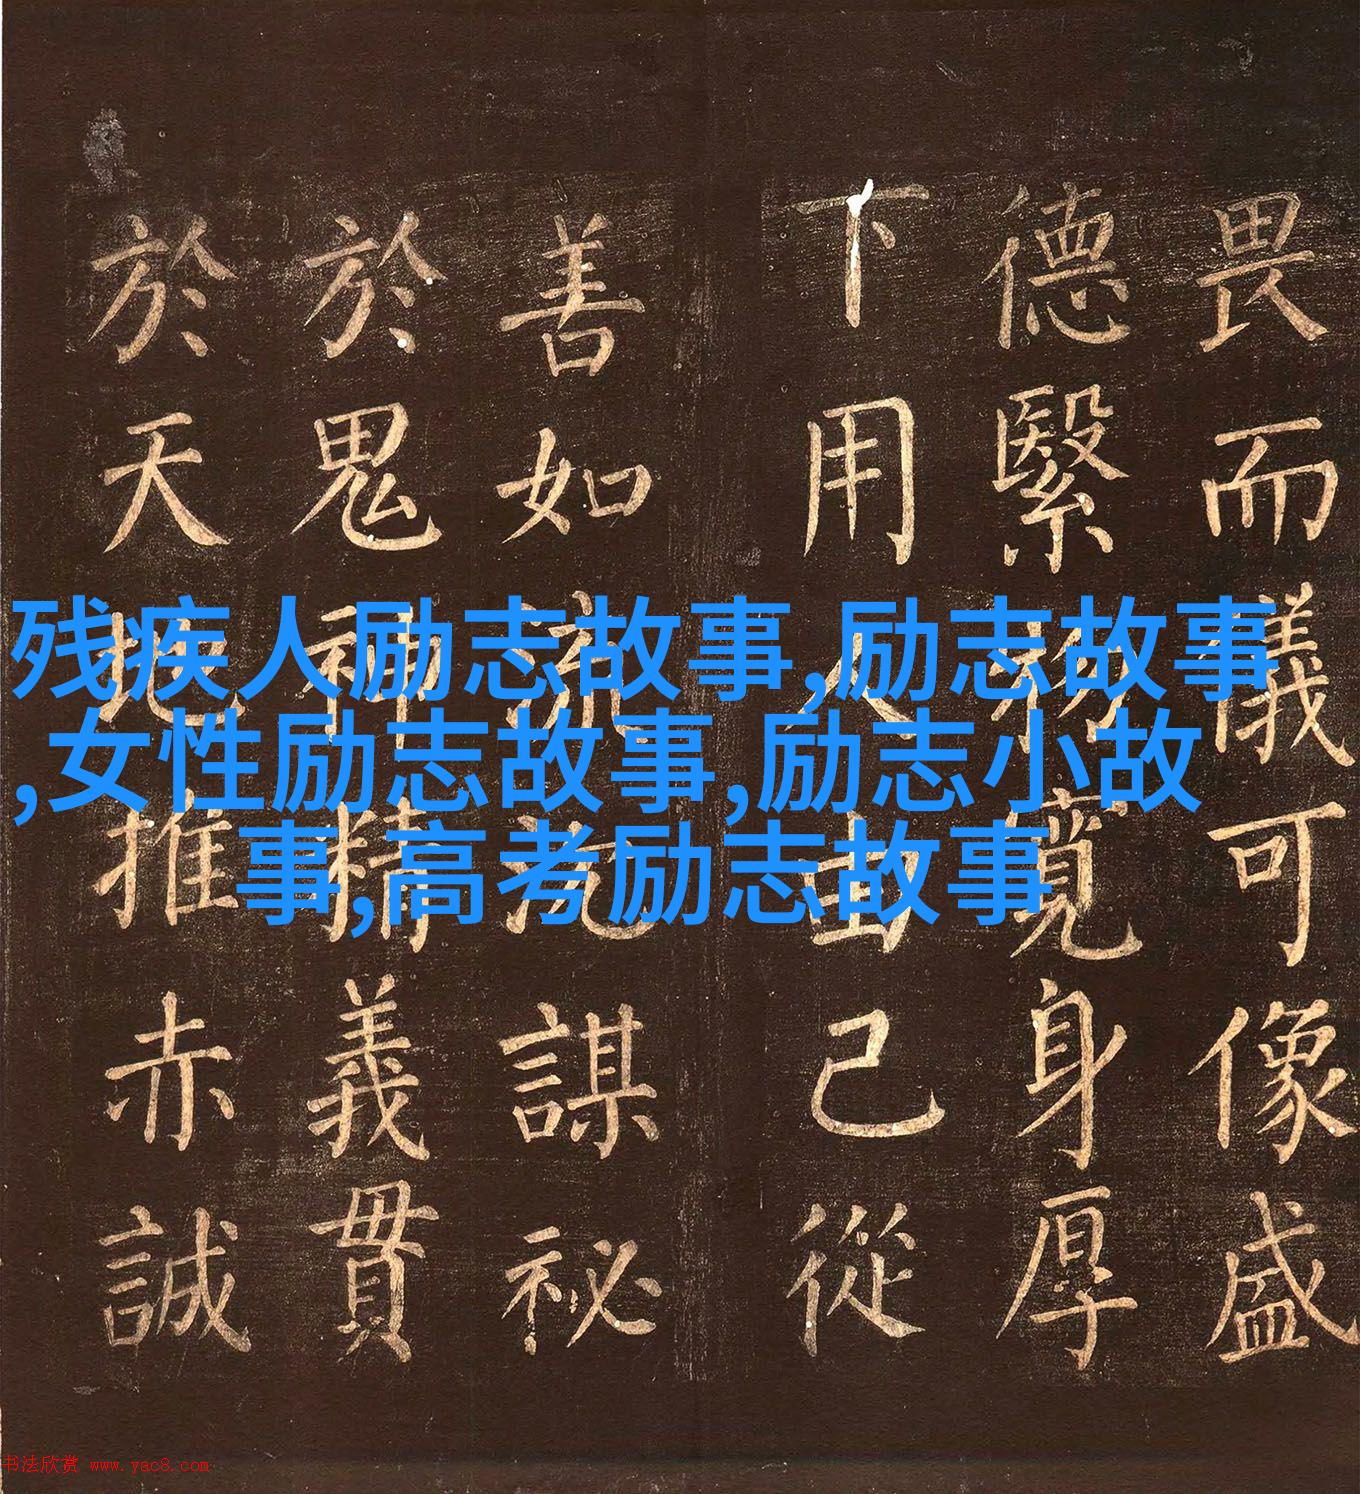 畏而儀可像盛
德繄物寬身厚
下用人由己從
善如流沈謀祕
於鬼神精義貫
於天地推赤誠
残疾人励志故事,励志故事
,女性励志故事,励志小故
事,高考励志故事
书法欣赏 www.yac8.com